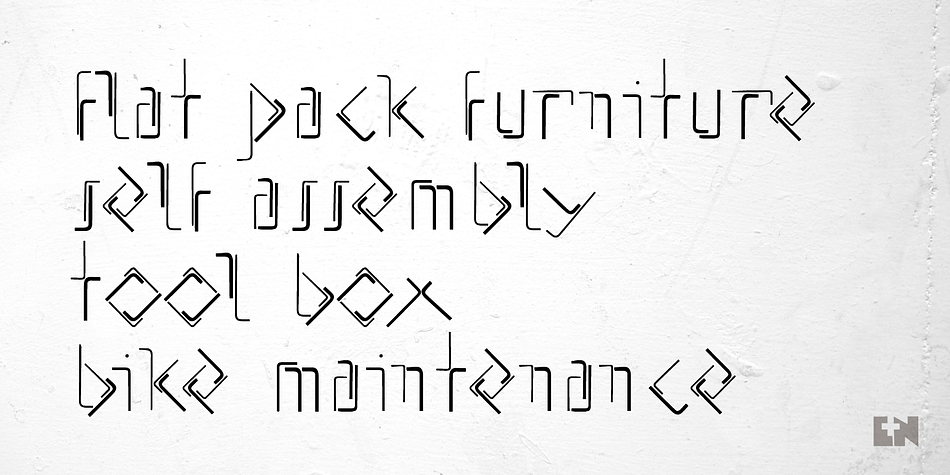 flat pack furniture
self assembly
tool box
bike maintenance